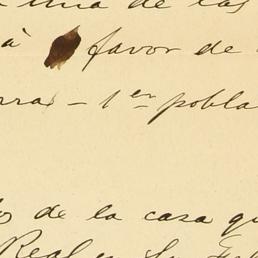 una de las
à favor de
- 1er pobla
de la casa qu
Real